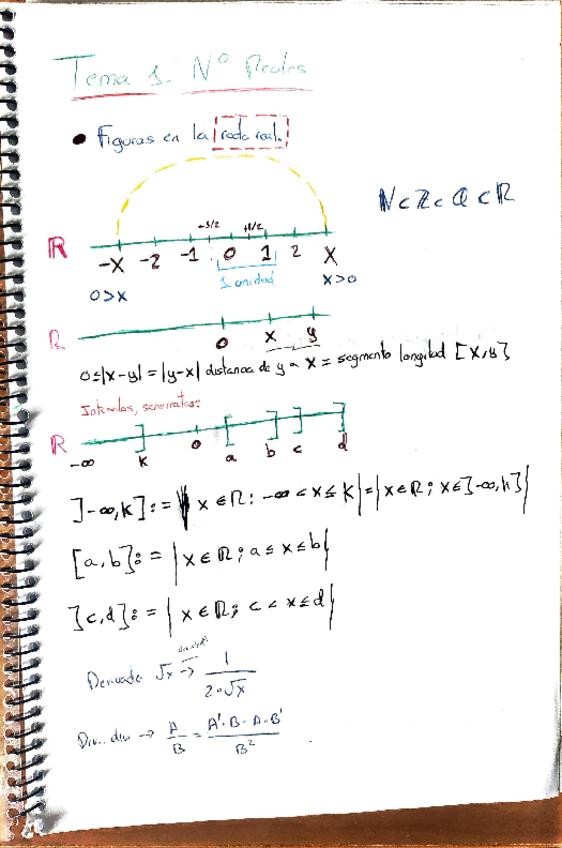 Tema 1. Nº Reales
• Figuras en la recta real.
N ⊂ Z ⊂ Q ⊂ R
-3/2 +1/2
R -X -2 -1 0 1 2 X
0>x 1 unidad x>0
R 0 x y
0≤|x-y| = |y-x| distancia de y a x = segmento longitud [x,y]
Intervalos, semirrectas:
R -∞ k 0 a b c d
]-∞,k] := | x ∈ R : -∞ < x ≤ k| = |x ∈ R ; x ∈ ]-∞,k]|
[a,b] := | x ∈ R ; a ≤ x ≤ b|
]c,d] := | x ∈ R ; c < x ≤ d|
Derivada √x → 1/(2·√x)
→ A/B = (A'·B - A·B')/B²